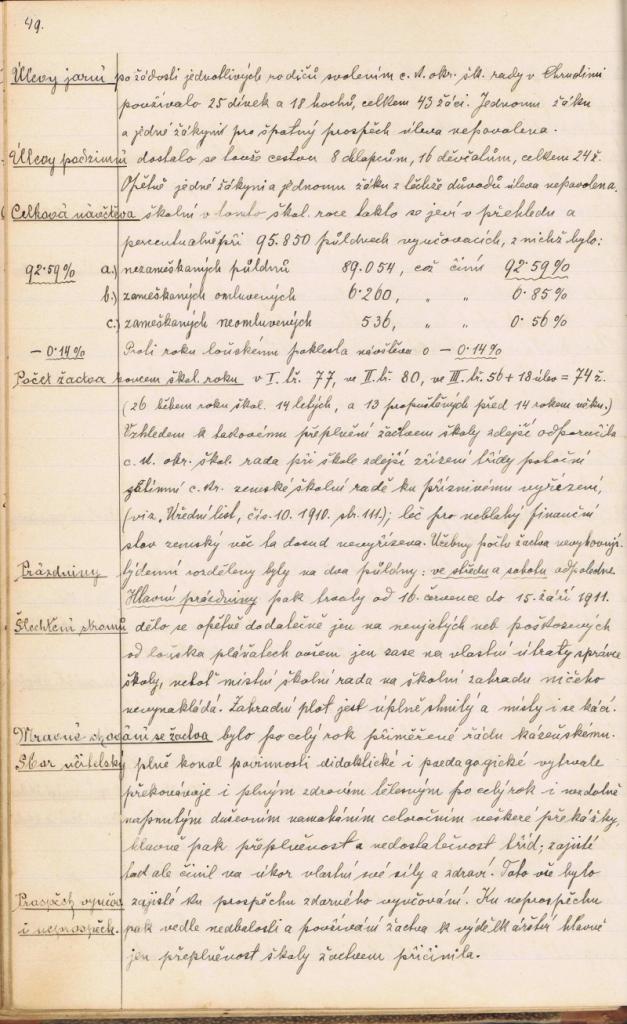 49.
Úlevy jarní po žádosti jednotlivých rodičů svolením c. k. okr. šk. rady v Chrudimi
používalo 25 dívek a 18 hochů, celkem 43 žáci. Jednomu žáku
a jedné žákyni pro špatný prospěch úleva nepovolena.
Úlevy podzimní dostalo se touže cestou 8 chlapcům, 16 děvčatům, celkem 24 ž.
Opětně jedné žákyni a jednomu žáku z těchže důvodů úleva nepovolena.
Celková návštěva školní v tomto škol. roce takto se jeví v přehledu a
percentuálně při 95.850 půldnech vyučovacích, z nichž bylo:
92·59% a.) nezameškaných půldnů 89.054, což činí 92·59%
b.) zameškaných omluvených 6·260, " " 6·85%
c.) zameškaných neomluvených 536, " " 0·56%
– 0·14% Proti roku loňskému poklesla návštěva o – 0·14%
Počet žactva koncem škol. roku v I. tř. 77, ve II. tř. 80, ve III. tř. 56 + 18 úlev = 74 ž.
(26 během roku škol. 14 letých, a 13 propuštěných před 14 rokem věku.)
Vzhledem k takovému přeplnění žactvem školy zdejší odporučila
c. k. okr. škol. rada při škole zdejší zřízení třídy pobočné
c. k. zemské školní radě ku příznivému vyřízení,
(viz „Úřední list, čís. 10. 1910. str. 111.); leč pro neblahý finanční
stav zemský věc ta dosud nevyřízena. Učebny počtu žactva nevyhovují.
Prázdniny týdenní rozděleny byly na dva půldny: ve středu a sobotu odpoledne.
Hlavní prázdniny pak trvaly od 16. července do 15. září 1911.
Šlechtění stromů dělo se opětně dodatečně jen na neujatých neb poškozených
od loňska pláňatech ovšem jen zase na vlastní útraty správce
školy, neboť místní školní rada na školní zahradu ničeho
nevynakládá. Zahradní plot jest úplně shnilý a místy i se kácí.
Mravné chování se žactva bylo po celý rok přiměřené řádu kázeňskému.
Sbor učitelský plně konal povinnosti didaktické i paedagogické vytrvale
překonávaje i plným zdravím tělesným po celý rok i vzdorně
napentým duševním namaháním celoročním veškeré překážky,
hlavně pak přeplněnost a nedostatečnost tříd; zajisté
tak ale činil na úkor vlastní své síly a zdraví. Toto vše bylo
Prospěch vyučov. zajisté ku prospěchu zdarného vyučování. Ku neprospěchu
i neprospěch. pak vedle nedbalosti a používání žactva k výdělkářství hlavně
jen přeplněnost školy žactvem přičinila.